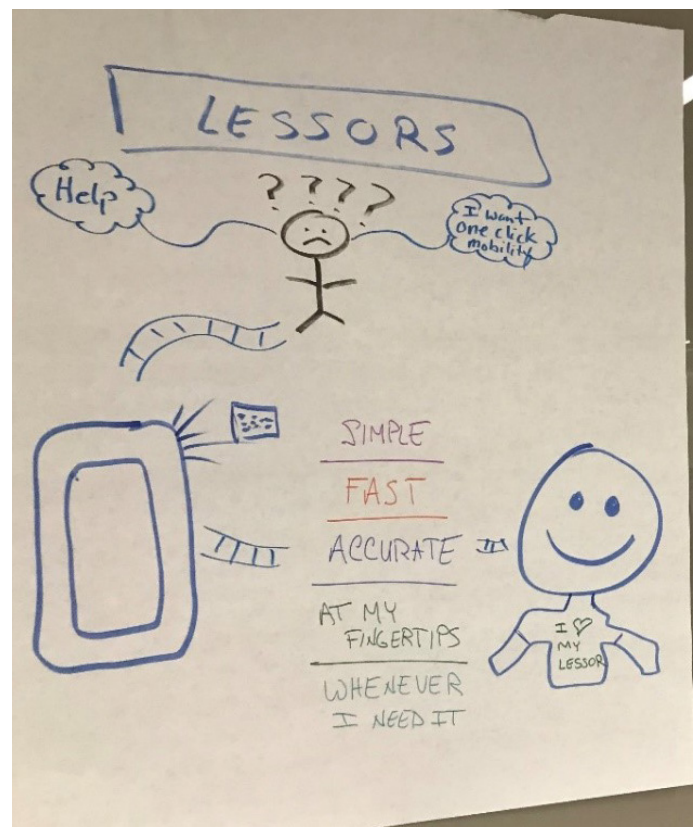 LESSORS
Help
? ? ? ?
I want
one click
mobility
SIMPLE
FAST
ACCURATE
AT MY
FINGERTIPS
WHENEVER
I NEED IT
I ♡
MY
LESSOR